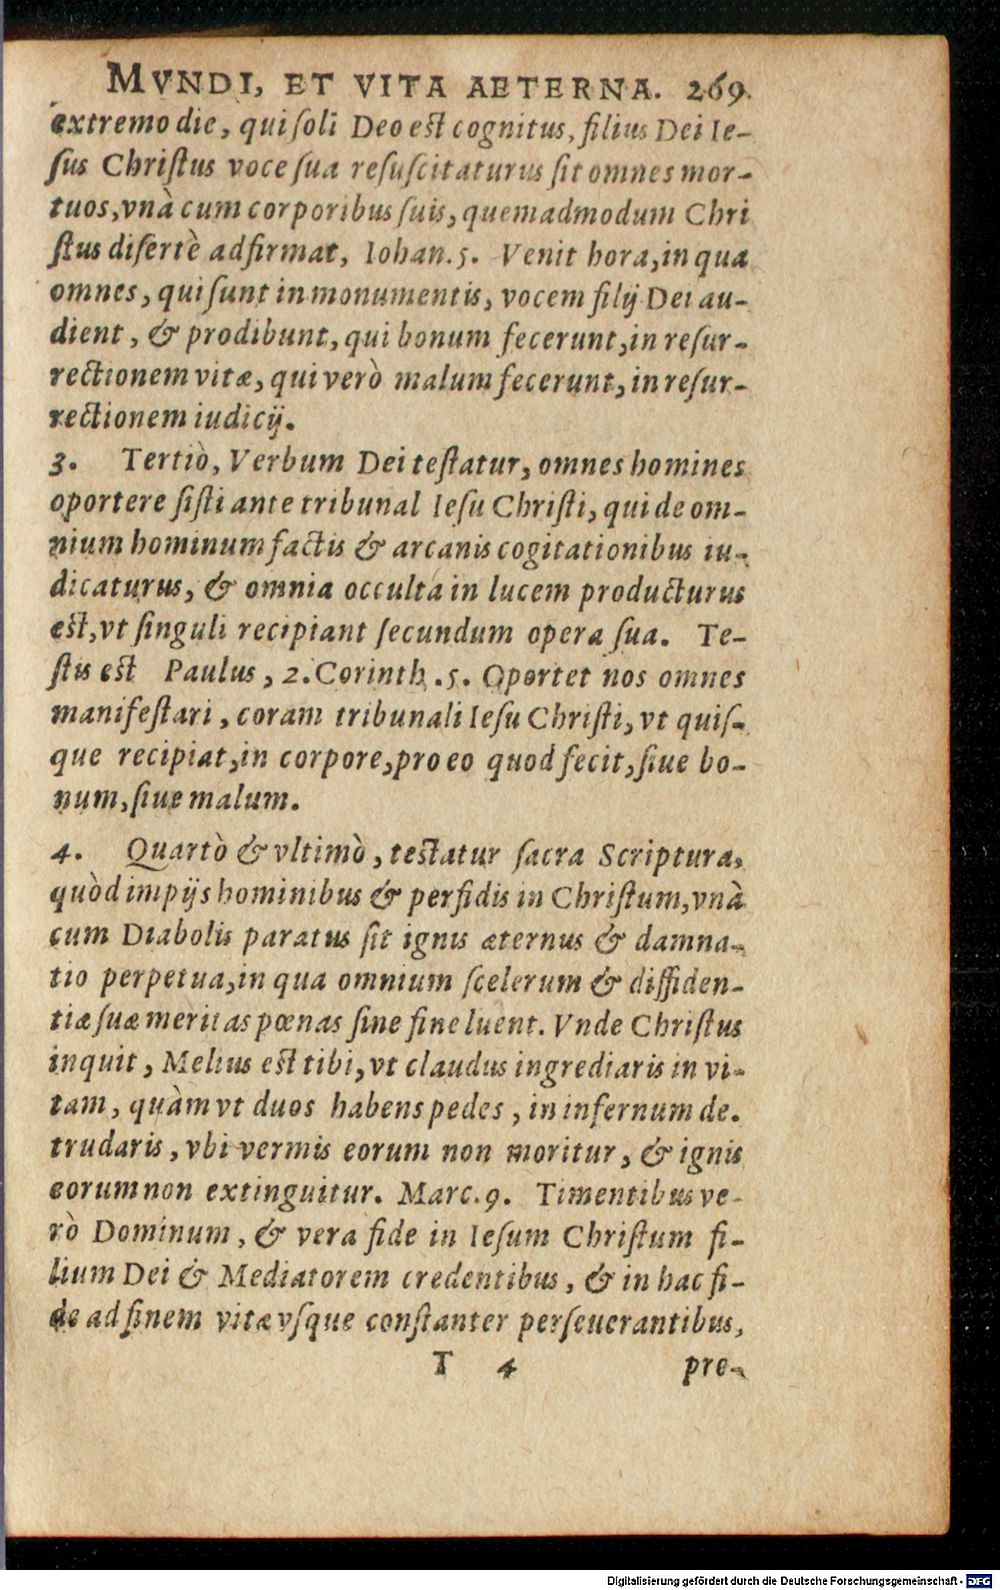 MVNDI, ET VITA AETERNA. 269.
extremo die, qui ſoli Deo eſt cognitus, filius Dei Ie-
ſus Chriſtus voce ſua reſuſcitaturus ſit omnes mor-
tuos, vnà cum corporibus ſuis, quemadmodum Chri
ſtus diſertè adfirmat, Iohan. 5. Venit hora, in qua
omnes, qui ſunt in monumentis, vocem filij Dei au-
dient, & prodibunt, qui bonum fecerunt, in reſur-
rectionem vitæ, qui verò malum fecerunt, in reſur-
rectionem iudicij.
3. Tertiò, Verbum Dei teſtatur, omnes homines
oportere ſiſti ante tribunal Ieſu Chriſti, qui de om-
nium hominum factis & arcanis cogitationibus iu-
dicaturus, & omnia occulta in lucem producturus
eſt, vt ſinguli recipiant ſecundum opera ſua. Te-
ſtis eſt Paulus, 2. Corinth. 5. Oportet nos omnes
manifeſtari, coram tribunali Ieſu Chriſti, vt quiſ-
que recipiat, in corpore, pro eo quod fecit, ſiue bo-
num, ſiue malum.
4. Quartò & vltimò, teſtatur ſacra Scriptura,
quòd impijs hominibus & perfidis in Chriſtum, vnà
cum Diabolis paratus ſit ignis æternus & damna-
tio perpetua, in qua omnium ſcelerum & diffiden-
tiæ ſuæ meritas pœnas ſine fine luent. Vnde Chriſtus
inquit, Melius eſt tibi, vt claudus ingrediaris in vi-
tam, quàm vt duos habens pedes, in infernum de.
trudaris, vbi vermis eorum non moritur, & ignis
eorum non extinguitur. Marc. 9. Timentibus ve-
rò Dominum, & vera fide in Ieſum Chriſtum fi-
lium Dei & Mediatorem credentibus, & in hac fi-
de ad finem vitæ vſque conſtanter perſeuerantibus,
T 4 pre-
Digitalisierung gefördert durch die Deutsche Forschungsgemeinschaft - DFG